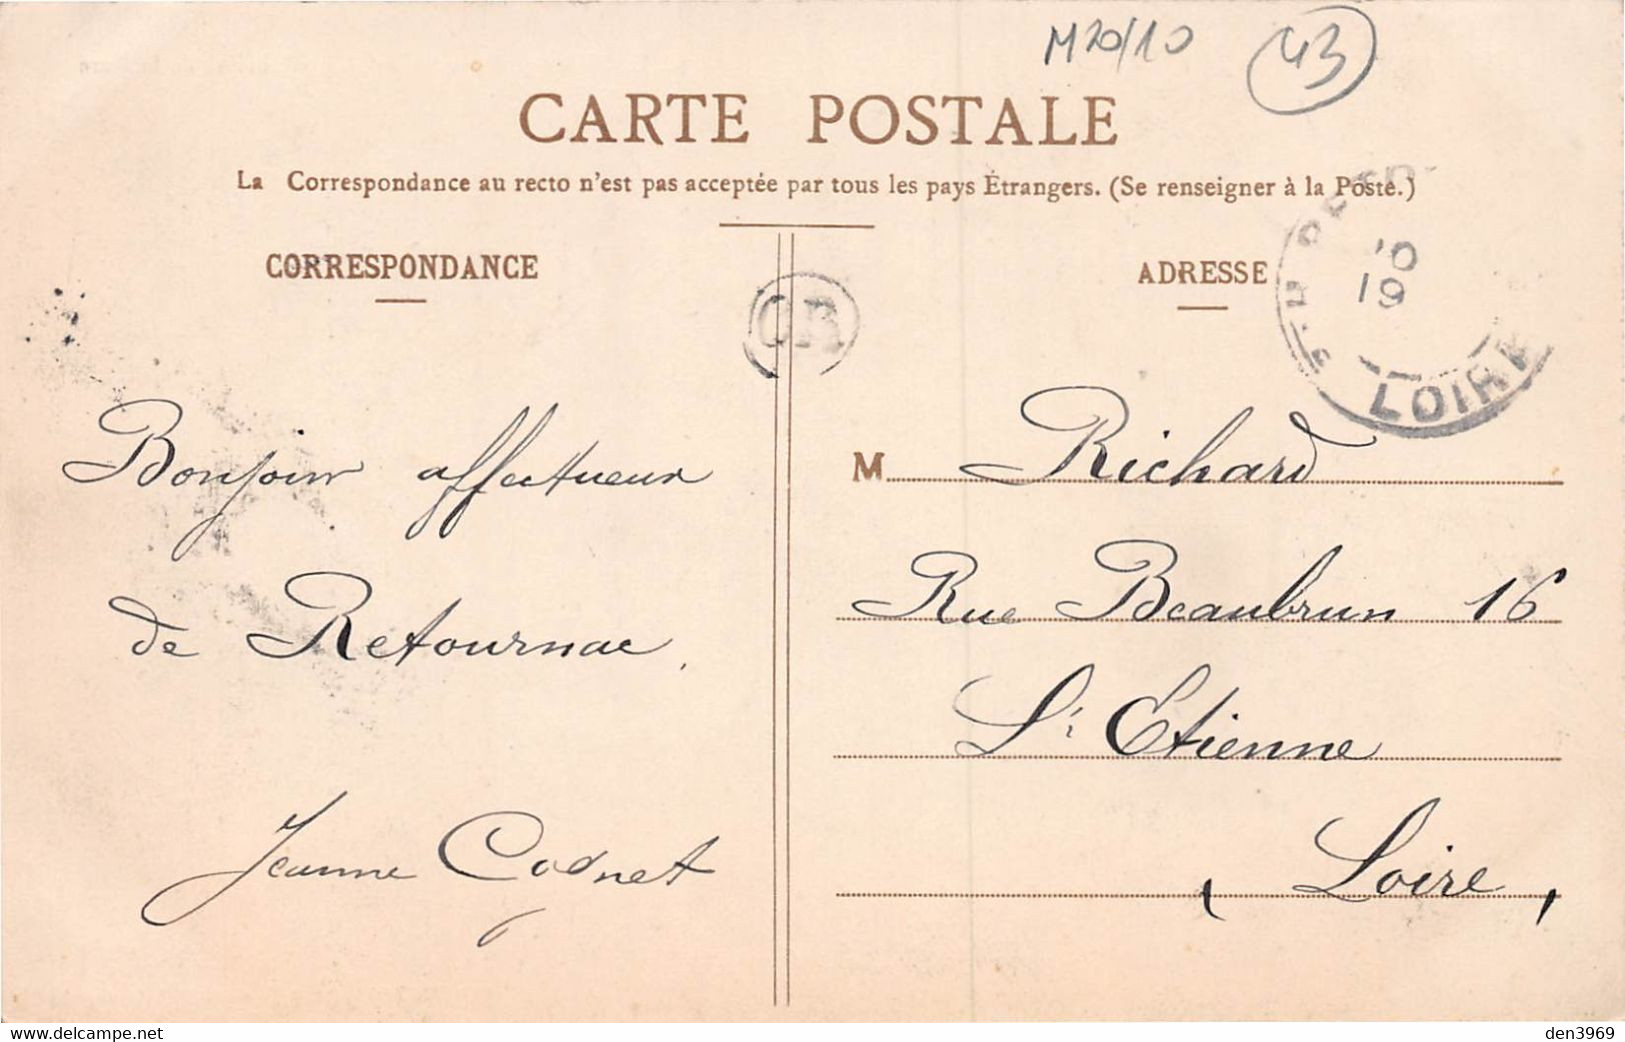 M20/10 43
CARTE POSTALE
La Correspondance au recto n'est pas acceptée par tous les pays Étrangers. (Se renseigner à la Poste.)
CORRESPONDANCE
Bonjour affectueux
de Retournac
Jeanne Cognet
OR
ADRESSE
10
19
LOIRE
M. Richard
Rue Beaubrun 16
St Etienne
( Loire )
https://www.delcampe.net
den3969